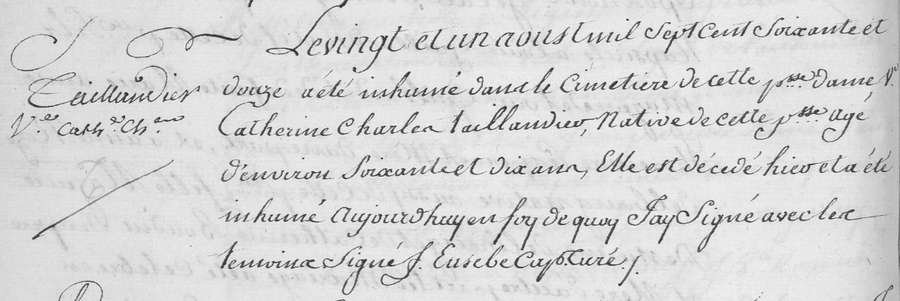 Le vingt et un aoust mil Sept Cent Soixante et
Taillandier
douze a été inhumé dans le Cimetiere de cette psse dame, Ve
Ve Cathe Ch
Catherine Charles taillandier, Native de cette psse agé
d'environ Soixante et dix ans, Elle est décedé hier et a été
inhumé aujourd'huy en foy de quoy J'ay Signé avec les
temoins Signé f. Eusebe Cap. Curé ./.